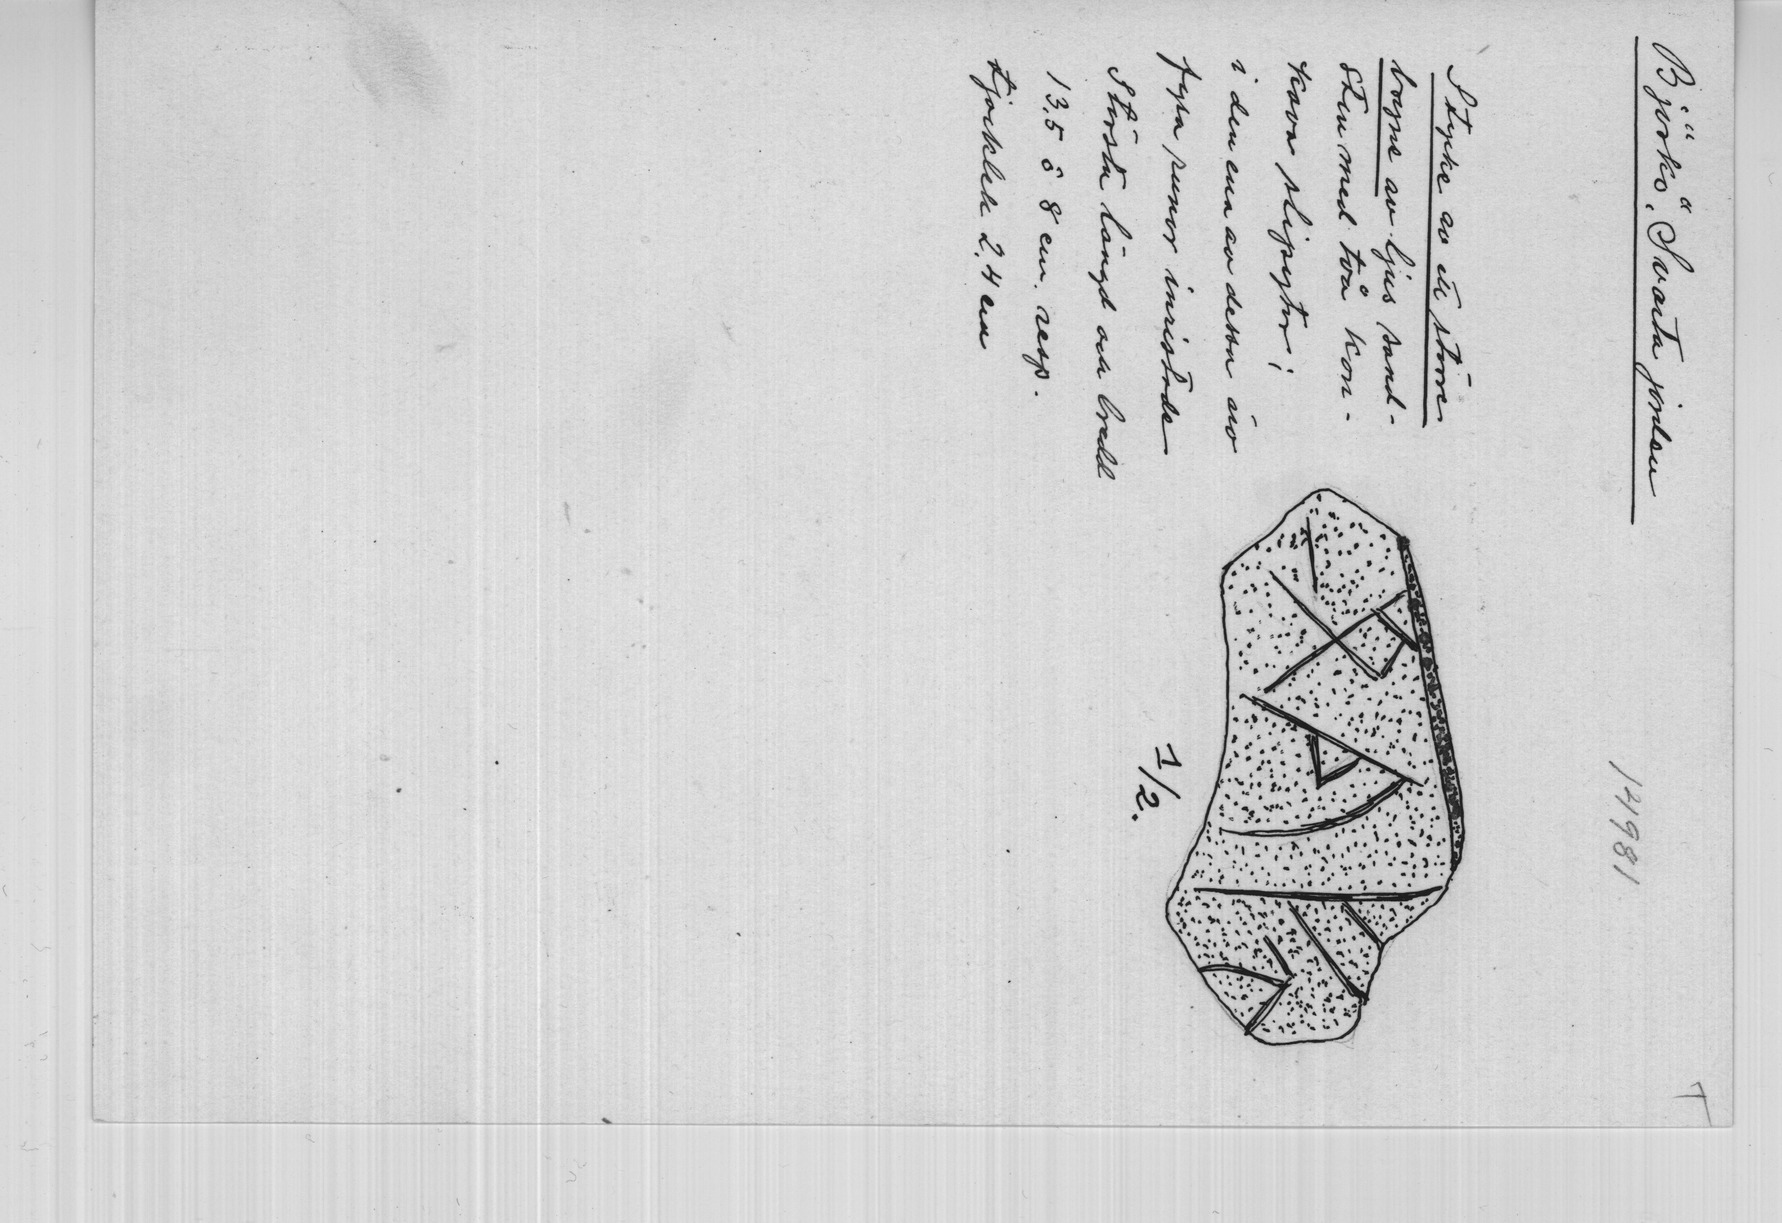 Björkö. Svarta jorden
14981.
Stycke av ett större
bryne av ljus sand-
sten med två kon-
kava slipytor;
i den ena av dessa äro
fyra runor inristade
Största längd och bredd
13.5 o 8 cm. resp.
tjocklek 2.4 cm
1/2.
T